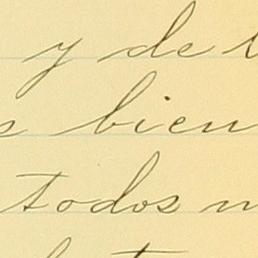 y de
bien
todos